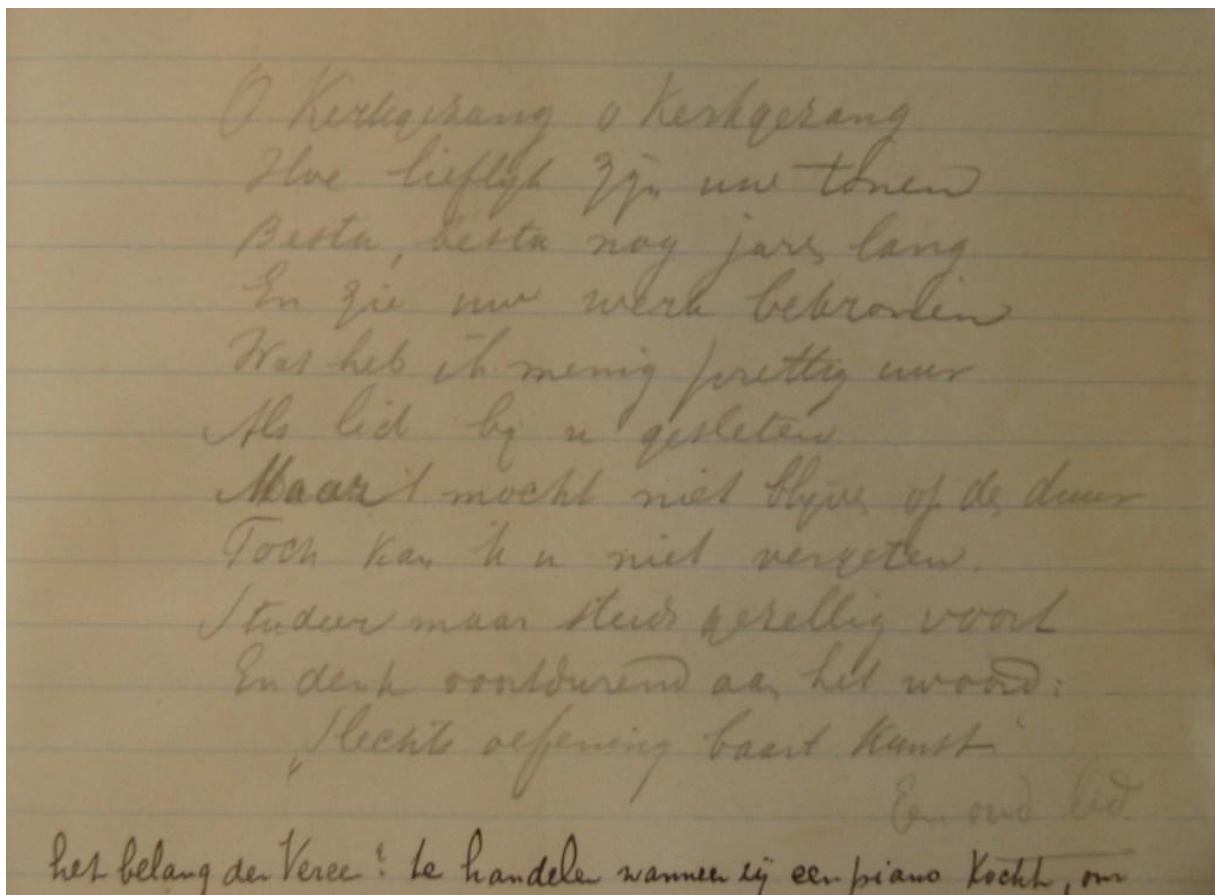 O Kerkgezang o Kerkgezang
Hoe lieflijk zijn uw tonen
Besta, besta nog jaren lang
En zie uw werk bekronen
Wat heb ik menig prettig uur
Als lid bij u gesleten
Maar 't mocht niet blijven op den duur
Toch kan 'k u niet vergeten.
Studeer maar steeds gezellig voort
En denk voortdurend aan het woord:
„Slechts oefening baart kunst"
Een oud lid.
het belang der Vereen: te handelen wanneer zij een piano kocht, om